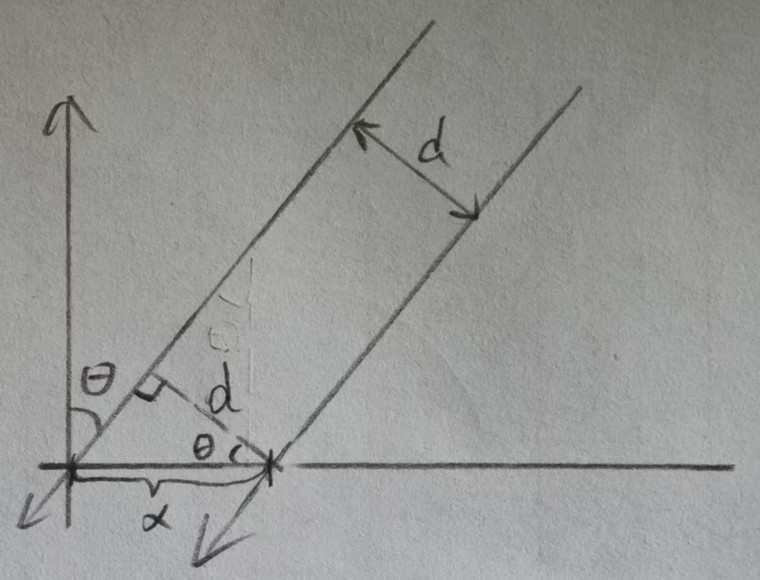 d
θ
d
θ
α